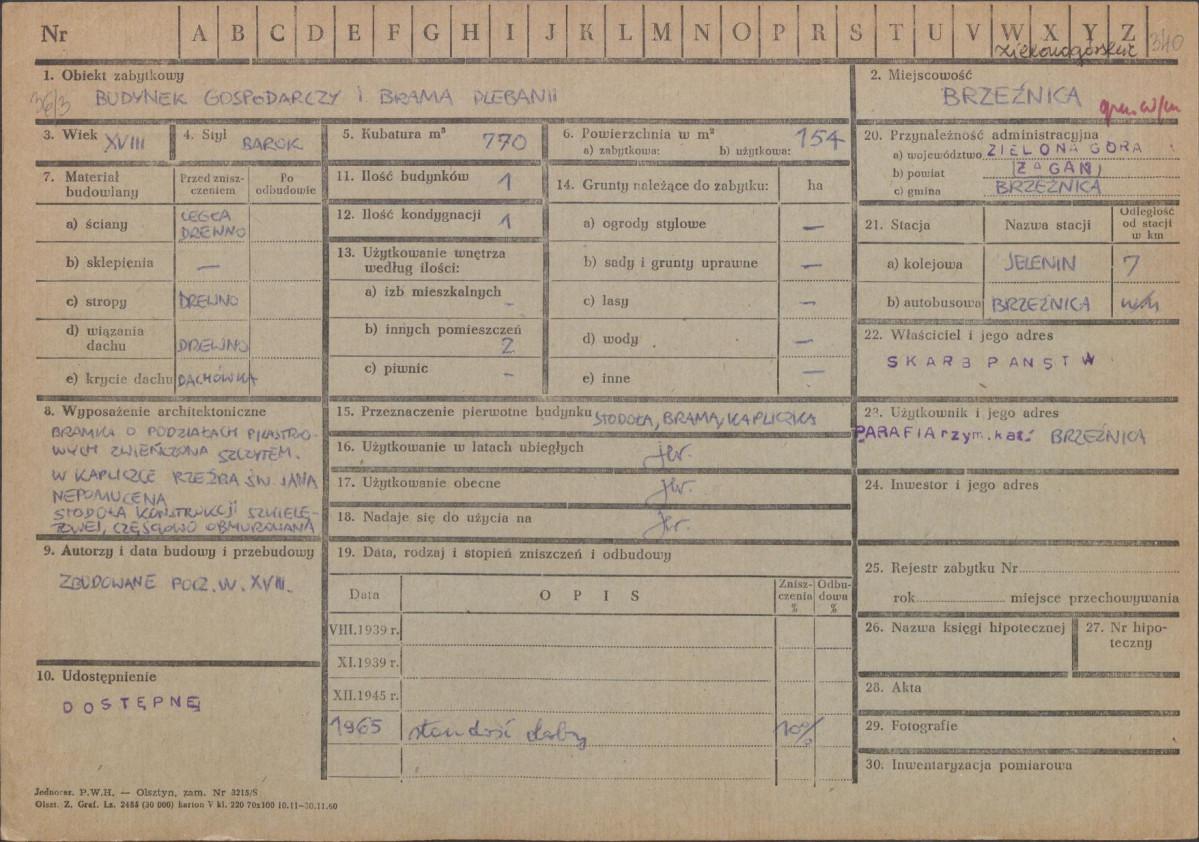 Nr A B C D E F G H I J K L M N O P R S T U V W X Y Z
zielonogórskie 340
1. Obiekt zabytkowy
36/3 BUDYNEK GOSPODARCZY I BRAMA PLEBANII
2. Miejscowość
BRZEŹNICA
3. Wiek XVIII
4. Styl BAROK
5. Kubatura m³ 770
6. Powierzchnia w m² 154
a) zabytkowa: b) użytkowa:
7. Materiał budowlany
Przed zniszczeniem
Po odbudowie
a) ściany CEGŁA DREWNO
b) sklepienia —
c) stropy DREWNO
d) wiązania dachu DREWNO
e) krycie dachu DACHÓWKA
8. Wyposażenie architektoniczne
BRAMKA O PODZIAŁACH PILASTRO-
WYCH ZWIEŃCZONA SZCZYTEM.
W KAPLICZCE RZEŹBA ŚW. JANA
NEPOMUCENA
STODOŁA KONSTRUKCJI SZKIELE-
TOWEJ, CZĘŚCIOWO OBMUROWANA
9. Autorzy i data budowy i przebudowy
ZBUDOWANE POCZ. W. XVIII.
10. Udostępnienie
DOSTĘPNE
11. Ilość budynków 1
12. Ilość kondygnacji 1
13. Użytkowanie wnętrza
według ilości:
a) izb mieszkalnych –
b) innych pomieszczeń
2
c) piwnic –
14. Grunty należące do zabytku: ha
a) ogrody stylowe —
b) sady i grunty uprawne —
c) lasy —
d) wody —
e) inne —
15. Przeznaczenie pierwotne budynku STODOŁA, BRAMA, KAPLICZKA
16. Użytkowanie w latach ubiegłych jw.
17. Użytkowanie obecne jw.
18. Nadaje się do użycia na jw.
19. Data, rodzaj i stopień zniszczeń i odbudowy
Data OPIS Zniszczenia % Odbudowa %
VIII.1939 r.
XI.1939 r.
XII.1945 r.
1965 stan dość dobry 10%
20. Przynależność administracyjna
a) województwo ZIELONA GÓRA
b) powiat ŻAGAŃ
c) gmina BRZEŹNICA
21. Stacja Nazwa stacji Odległość od stacji w km
a) kolejowa JELENIN 7
b) autobusowa BRZEŹNICA
22. Właściciel i jego adres
SKARB PAŃSTW
23. Użytkownik i jego adres
PARAFIA rzym. kat. BRZEŹNICA
24. Inwestor i jego adres
25. Rejestr zabytku Nr
rok miejsce przechowywania
26. Nazwa księgi hipotecznej
27. Nr hipoteczny
28. Akta
29. Fotografie
30. Inwentaryzacja pomiarowa
Jednoraz. P.W.H. — Olsztyn, zam. Nr 3215/S
Olszt. Z. Graf. Lz. 2455 (30 000) karton V kl. 220 70x100 10.11—30.11.60